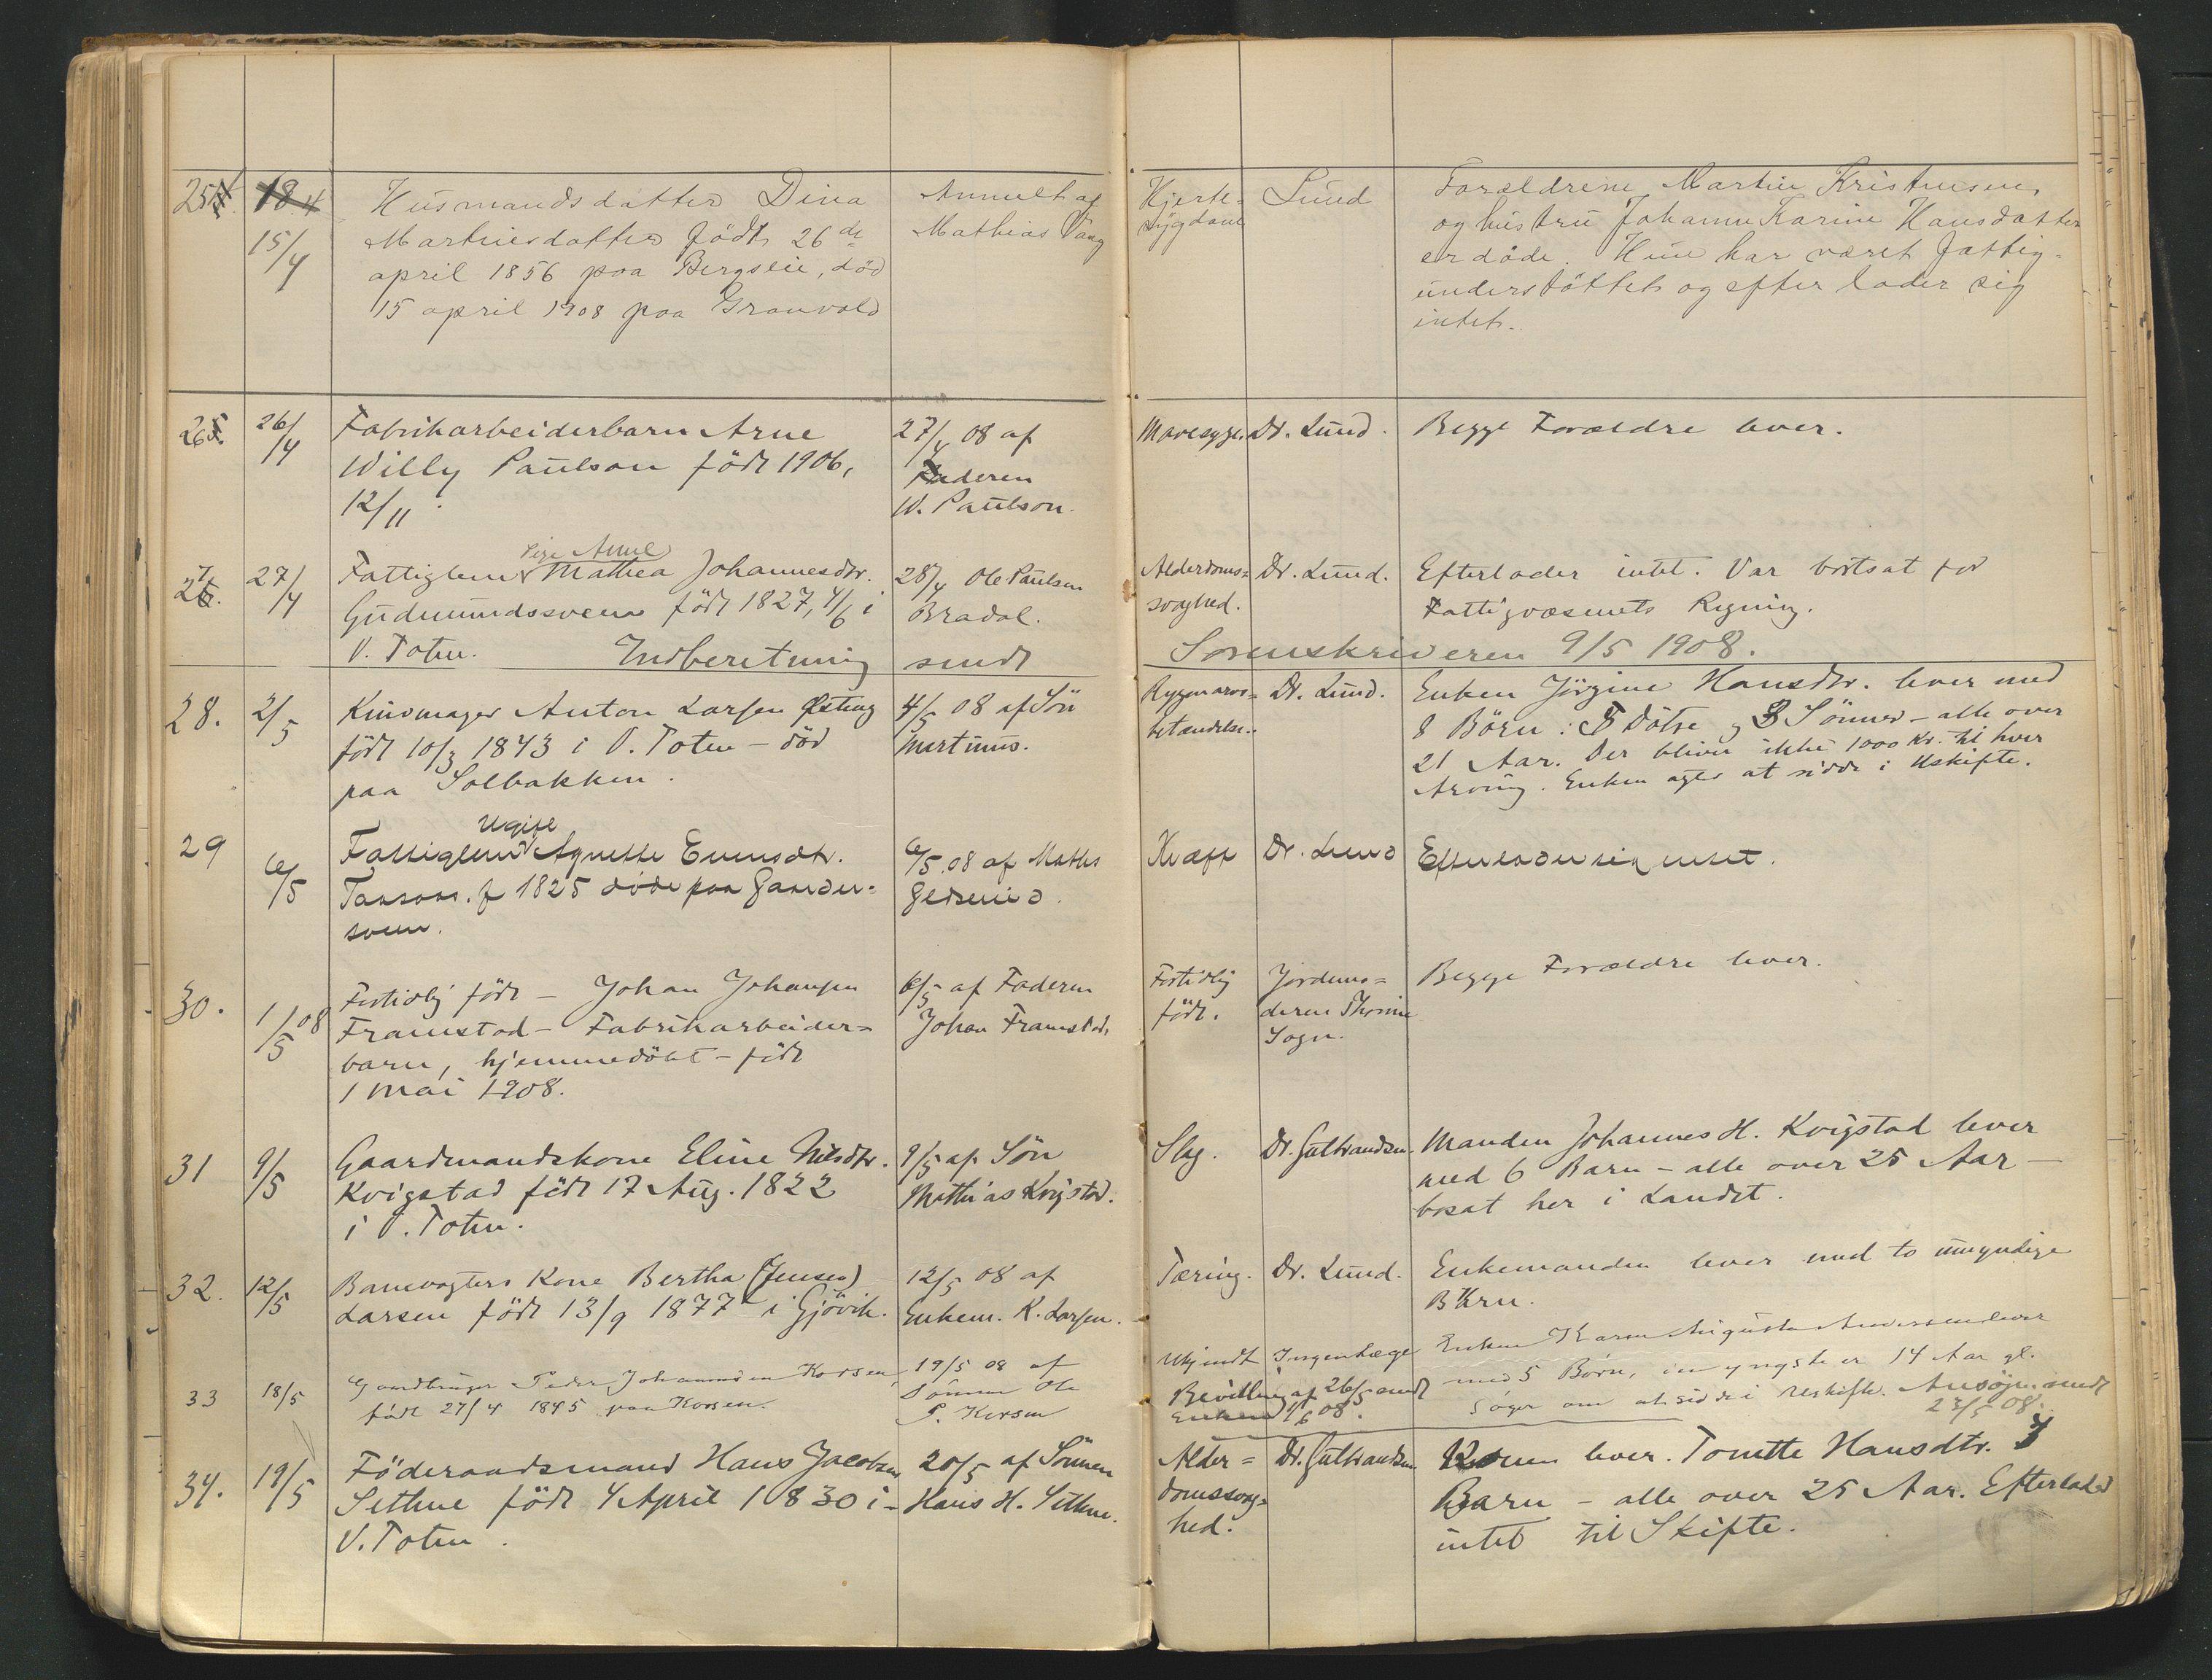 25 18.4 15/4
Husmandsdatter Dina
Martinesdatter födt 26de
april 1856 paa Bergslie, död
15 april 1908 paa Granvold
Anmelt af
Mathias Vang
Hjerte-
sygdom
Lund
Forældrene Martin Kristensen
og hustru Johanne Karine Hansdatter
er döde. Hun har været fattig-
understöttet og efterlader sig
intet.
26. 26/4
Fabrikarbeiderbarn Arne
Willy Paulson födt 1906,
12/11
27/4 08 af
Faderen
W. Paulson.
Mavesyge.
Dr. Lund.
Begge Forældre lever.
27. 27/4
Pige Anne
Fattiglem Mathea Johannesdtr.
Gudmundssveen födt 1827, 4/6 i
V. Toten.
28/4 Ole Paulsen
Bradal.
Alderdoms-
svaghed.
Dr. Lund.
Efterlader intet. Var bortsat for
Fattigvæsenets Regning.
Indberetning sendt Sorenskriveren 9/5 1908.
28. 2/5
Anton Larsen
födt 10/3 1843 i V. Toten – död
paa Solbakken.
4/5 08 af Sön
Martinus.
Rygmarvs-
betændelse.
Dr. Lund.
Enken Jörgine Hansdtr. lever med
8 Börn: 5 Dötre og 3 Sönner – alle over
21 Aar. Der bliver ikke 1000 Kr. til hver
Arving. Enken agter at sidde i Uskifte.
29 6/5
Ugift
Fattiglem Agnethe Evensdtr.
f 1825 döde paa Gaarder-
sveen.
6/5.08 af Mathis
Kræft
Dr. Lund
Efterlader sig intet.
30. 1/5 08
Fortidlig födt – Johan Johansen
Framstad – Fabrikarbeider-
barn, hjemmedöbt – födt
1 Mai 1908.
6/5 af Faderen
Johan Framstad.
Fortidlig
födt.
Jordemo-
deren Thorine
Sogn.
Begge Forældre lever.
31 9/5
Gaardmandskone Eline Nilsdtr.
Kvigstad födt 17 Aug. 1822
i V. Toten.
9/5 af Sön
Mathias Kvigstad.
Slag.
Dr. Gulbrandsen.
Manden Johannes H. Kvigstad lever
med 6 Barn – alle over 25 Aar –
bosat her i Landet.
32. 12/5
Banevogters Kone Bertha (Jensen)
Larsen födt 13/9 1877 i Gjövik.
12/5 08 af
Enkem. K. Larsen.
Tæring.
Dr. Lund.
Enkemanden lever med to umyndige
Börn.
33 18/5
Gaardbruger Peder Johannesen Korsen,
födt 27/4 1845 paa Korsen.
19/5 08 af
Sönnen Ole
P. Korsen
Ukjendt
Ingen Læge
Bevilling af 26/5 sendt
Enken 1/6 08.
Enken Karen Augusta Andersen lever
med 5 Börn, den yngste er 14 Aar gl.
Söger om at sidde i Uskifte. Ansögn. sendt
23/5 08.
34. 19/5
Föderaadsmand Hans Jacobsen
Sethne födt 4 April 1830 i
V. Toten.
20/5 af Sönnen
Hans H. Sethne.
Alder-
domssvag-
hed.
Dr. Gulbrandsen
Konen lever. Tonette Hansdtr. 3
Barn – alle over 25 Aar. Efterlader
intet til Skifte.